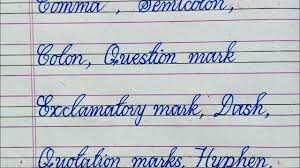 Comma , Semicolon,
Colon, Question mark
Exclamatory mark, Dash,
Quotation marks, Hyphen.